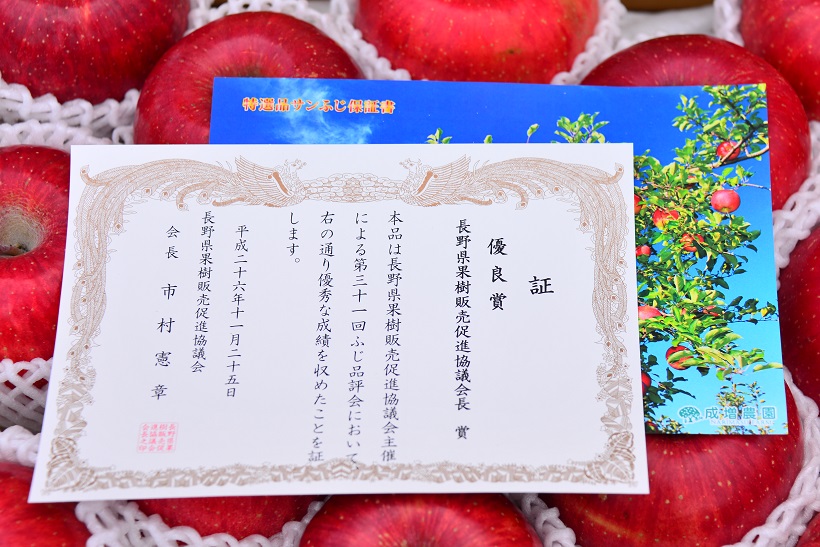 特選品サンふじ保証書
証
優良賞
長野県果樹販売促進協議会長 賞
本品は長野県果樹販売促進協議会主催
による第三十一回ふじ品評会において
右の通り優秀な成績を収めたことを証
します。
平成二十六年十一月二十五日
長野県果樹販売促進協議会
会長 市村憲章
成増農園